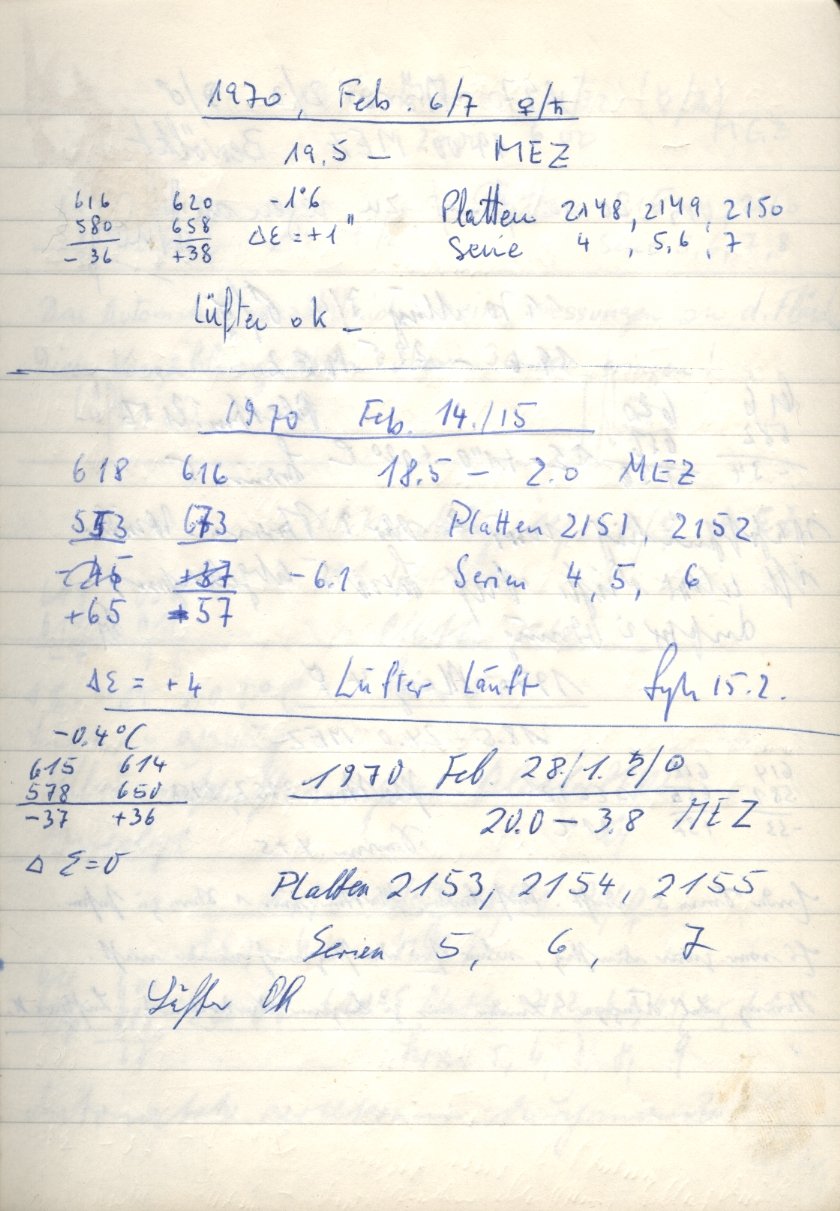 1970, Feb. 6/7 ♀/♄
19,5 — MEZ
616 620 -1°6 Platten 2148, 2149, 2150
580 658 Δε = +1" Serie 4, 5,6, 7
-36 +38
Lüfter ok —
1970 Feb. 14./15
618 616 18.5 — 2.0 MEZ
553 673 Platten 2151, 2152
-6.1 Serien 4, 5, 6
+65 +57
Δε = +4 Lüfter Läuft 15.2.
-0.4°C
615 614 1970 Feb. 28./1. ♄/☉
578 650
-37 +36 20.0 — 3.8 MEZ
Δ ε = 0
Platten 2153, 2154, 2155
Serien 5, 6, 7
Lüfter OK